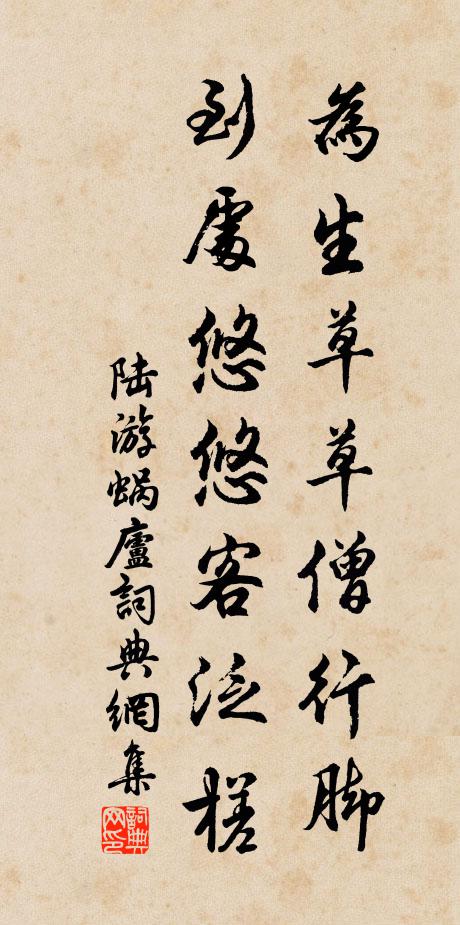 為生草草僧行脚
到處悠悠客泛槎
陆游蜗廬詞典網集
詞典网印